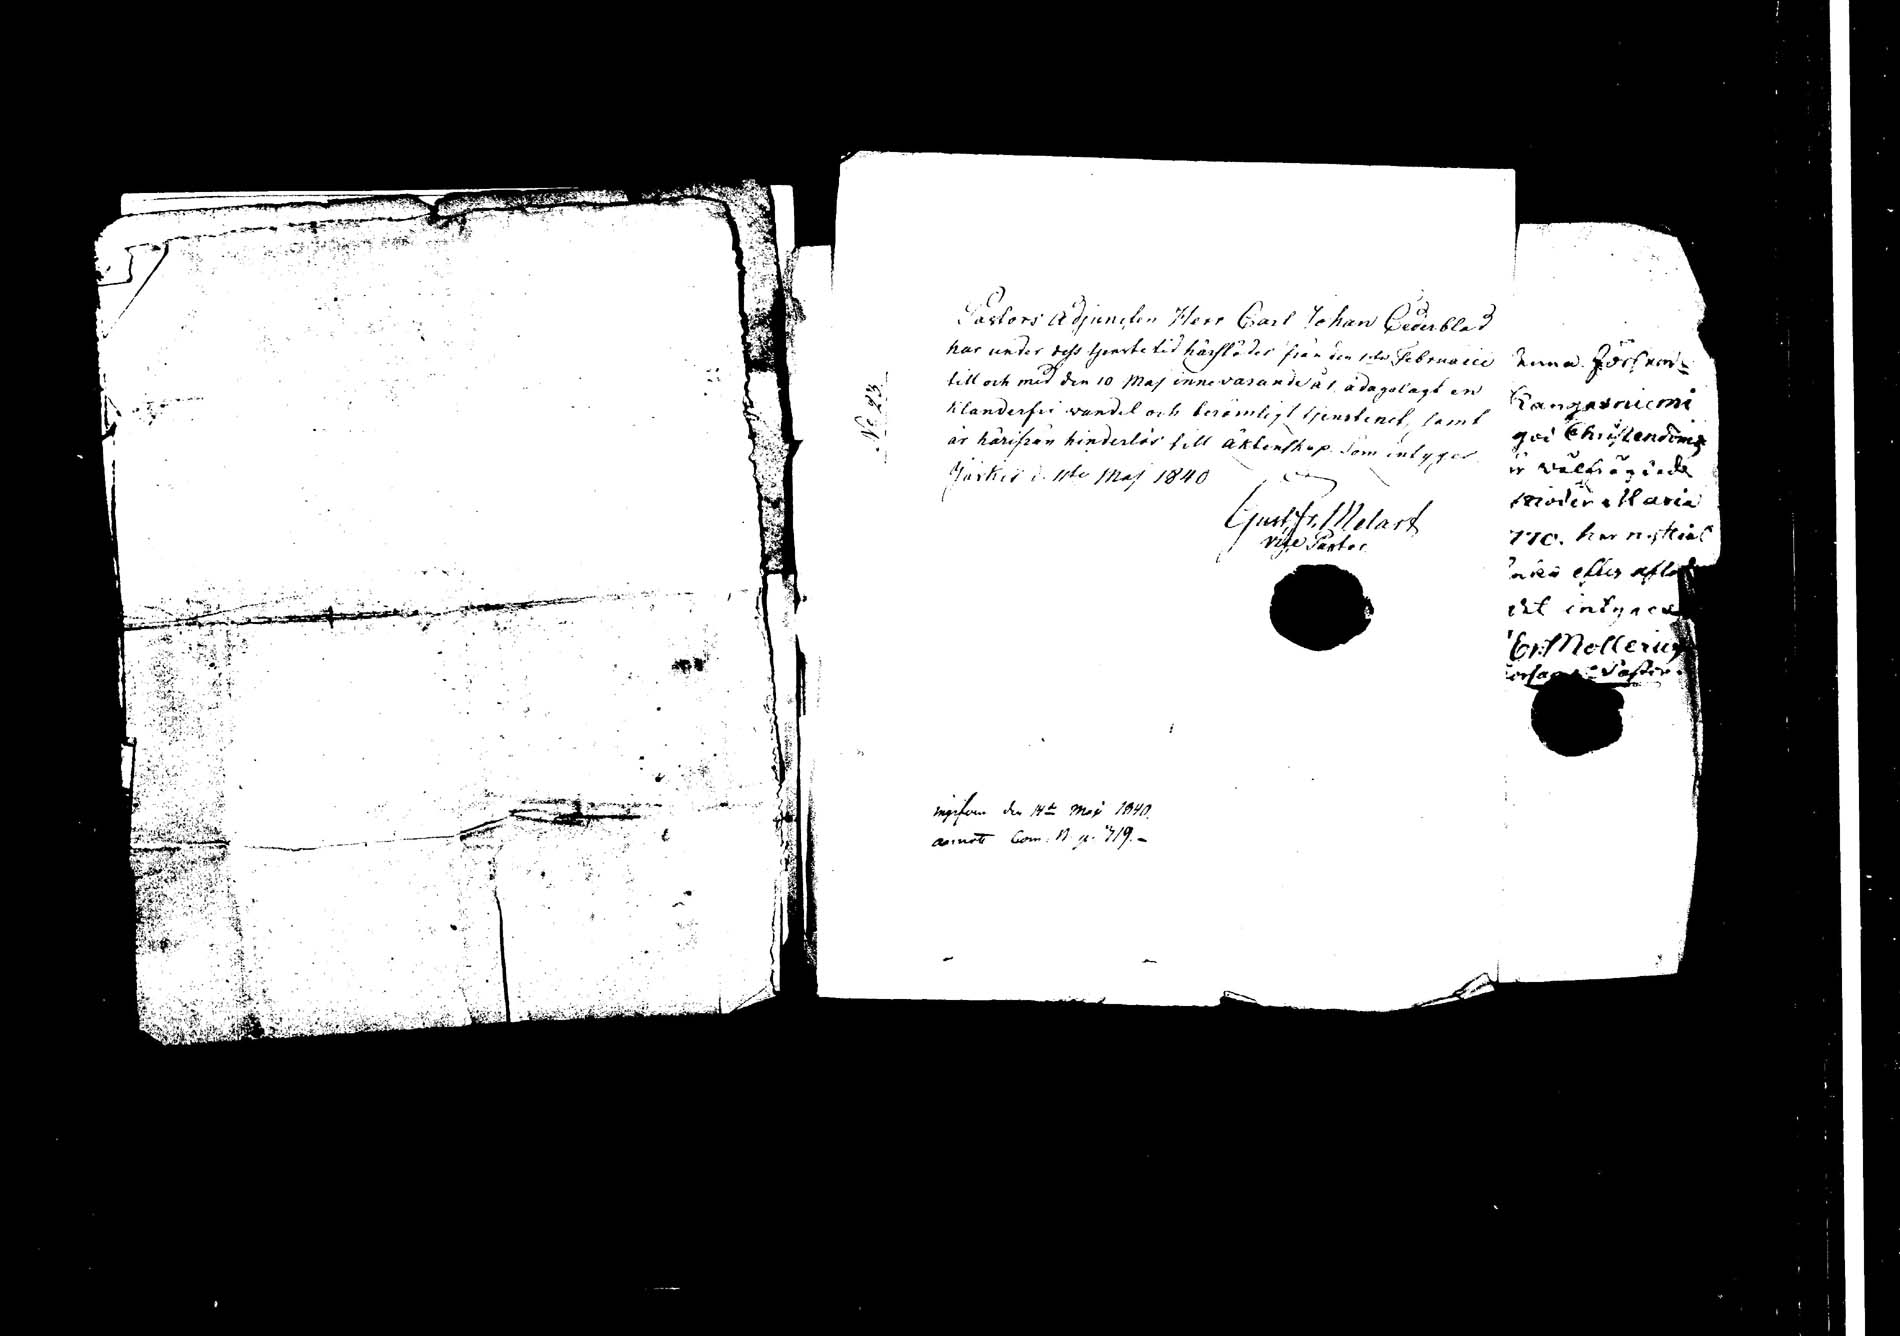 No 23.
Pastors Adjuncten Herr Carl Johan Cederblad
har under dess tjenstetid härstädes från den 1ste Februarii
till och med den 10 Maj innevarande år, ådagalagt en
klanderfri vandel och berömligt tjenstenit, samt
är härifrån hinderlös till äktenskap. Som intyger
Jäskis d. 11te Maj 1840
Gust. Fr. Melart
vice Pastor
den 14de Maj 1840.
Com. B p. 719.
Kangasniemi
god Christendoms
moder Maria
770. har
det intygas
Er. Mollerius
Pastor